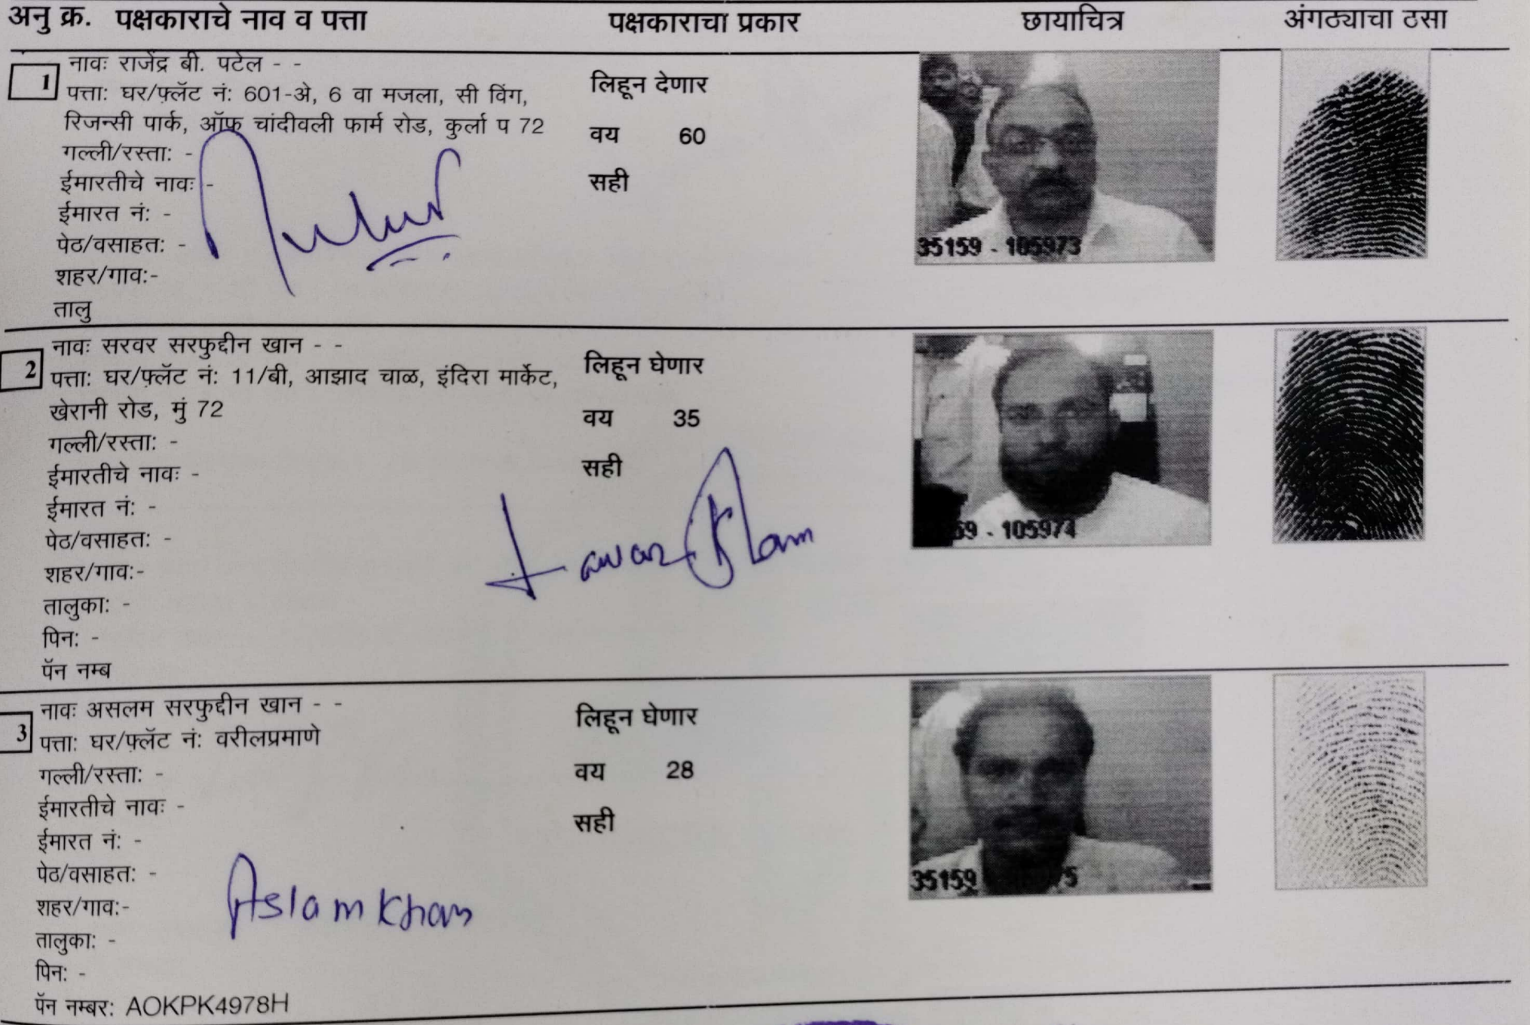 अनु क्र. पक्षकाराचे नाव व पत्ता पक्षकाराचा प्रकार छायाचित्र अंगठ्याचा ठसा
1
नावः राजेंद्र बी. पटेल - -
पत्ताः घर/फ्लॅट नंः 601-अे, 6 वा मजला, सी विंग,
रिजन्सी पार्क, ऑफ चांदीवली फार्म रोड, कुर्ला प 72
गल्ली/रस्ताः -
ईमारतीचे नावः -
ईमारत नंः -
पेठ/वसाहतः -
शहर/गावः-
तालु
लिहून देणार
वय 60
सही
35159 - 105973
2
नावः सरवर सरफुद्दीन खान - -
पत्ताः घर/फ्लॅट नंः 11/बी, आझाद चाळ, इंदिरा मार्केट,
खेरानी रोड, मुं 72
गल्ली/रस्ताः -
ईमारतीचे नावः -
ईमारत नंः -
पेठ/वसाहतः -
शहर/गावः-
तालुकाः -
पिनः -
पॅन नम्ब
लिहून घेणार
वय 35
सही
59 - 105974
3
नावः असलम सरफुद्दीन खान - -
पत्ताः घर/फ्लॅट नंः वरीलप्रमाणे
गल्ली/रस्ताः -
ईमारतीचे नावः -
ईमारत नंः -
पेठ/वसाहतः -
शहर/गावः-
तालुकाः -
पिनः -
पॅन नम्बरः AOKPK4978H
लिहून घेणार
वय 28
सही
Aslam Khan
35159